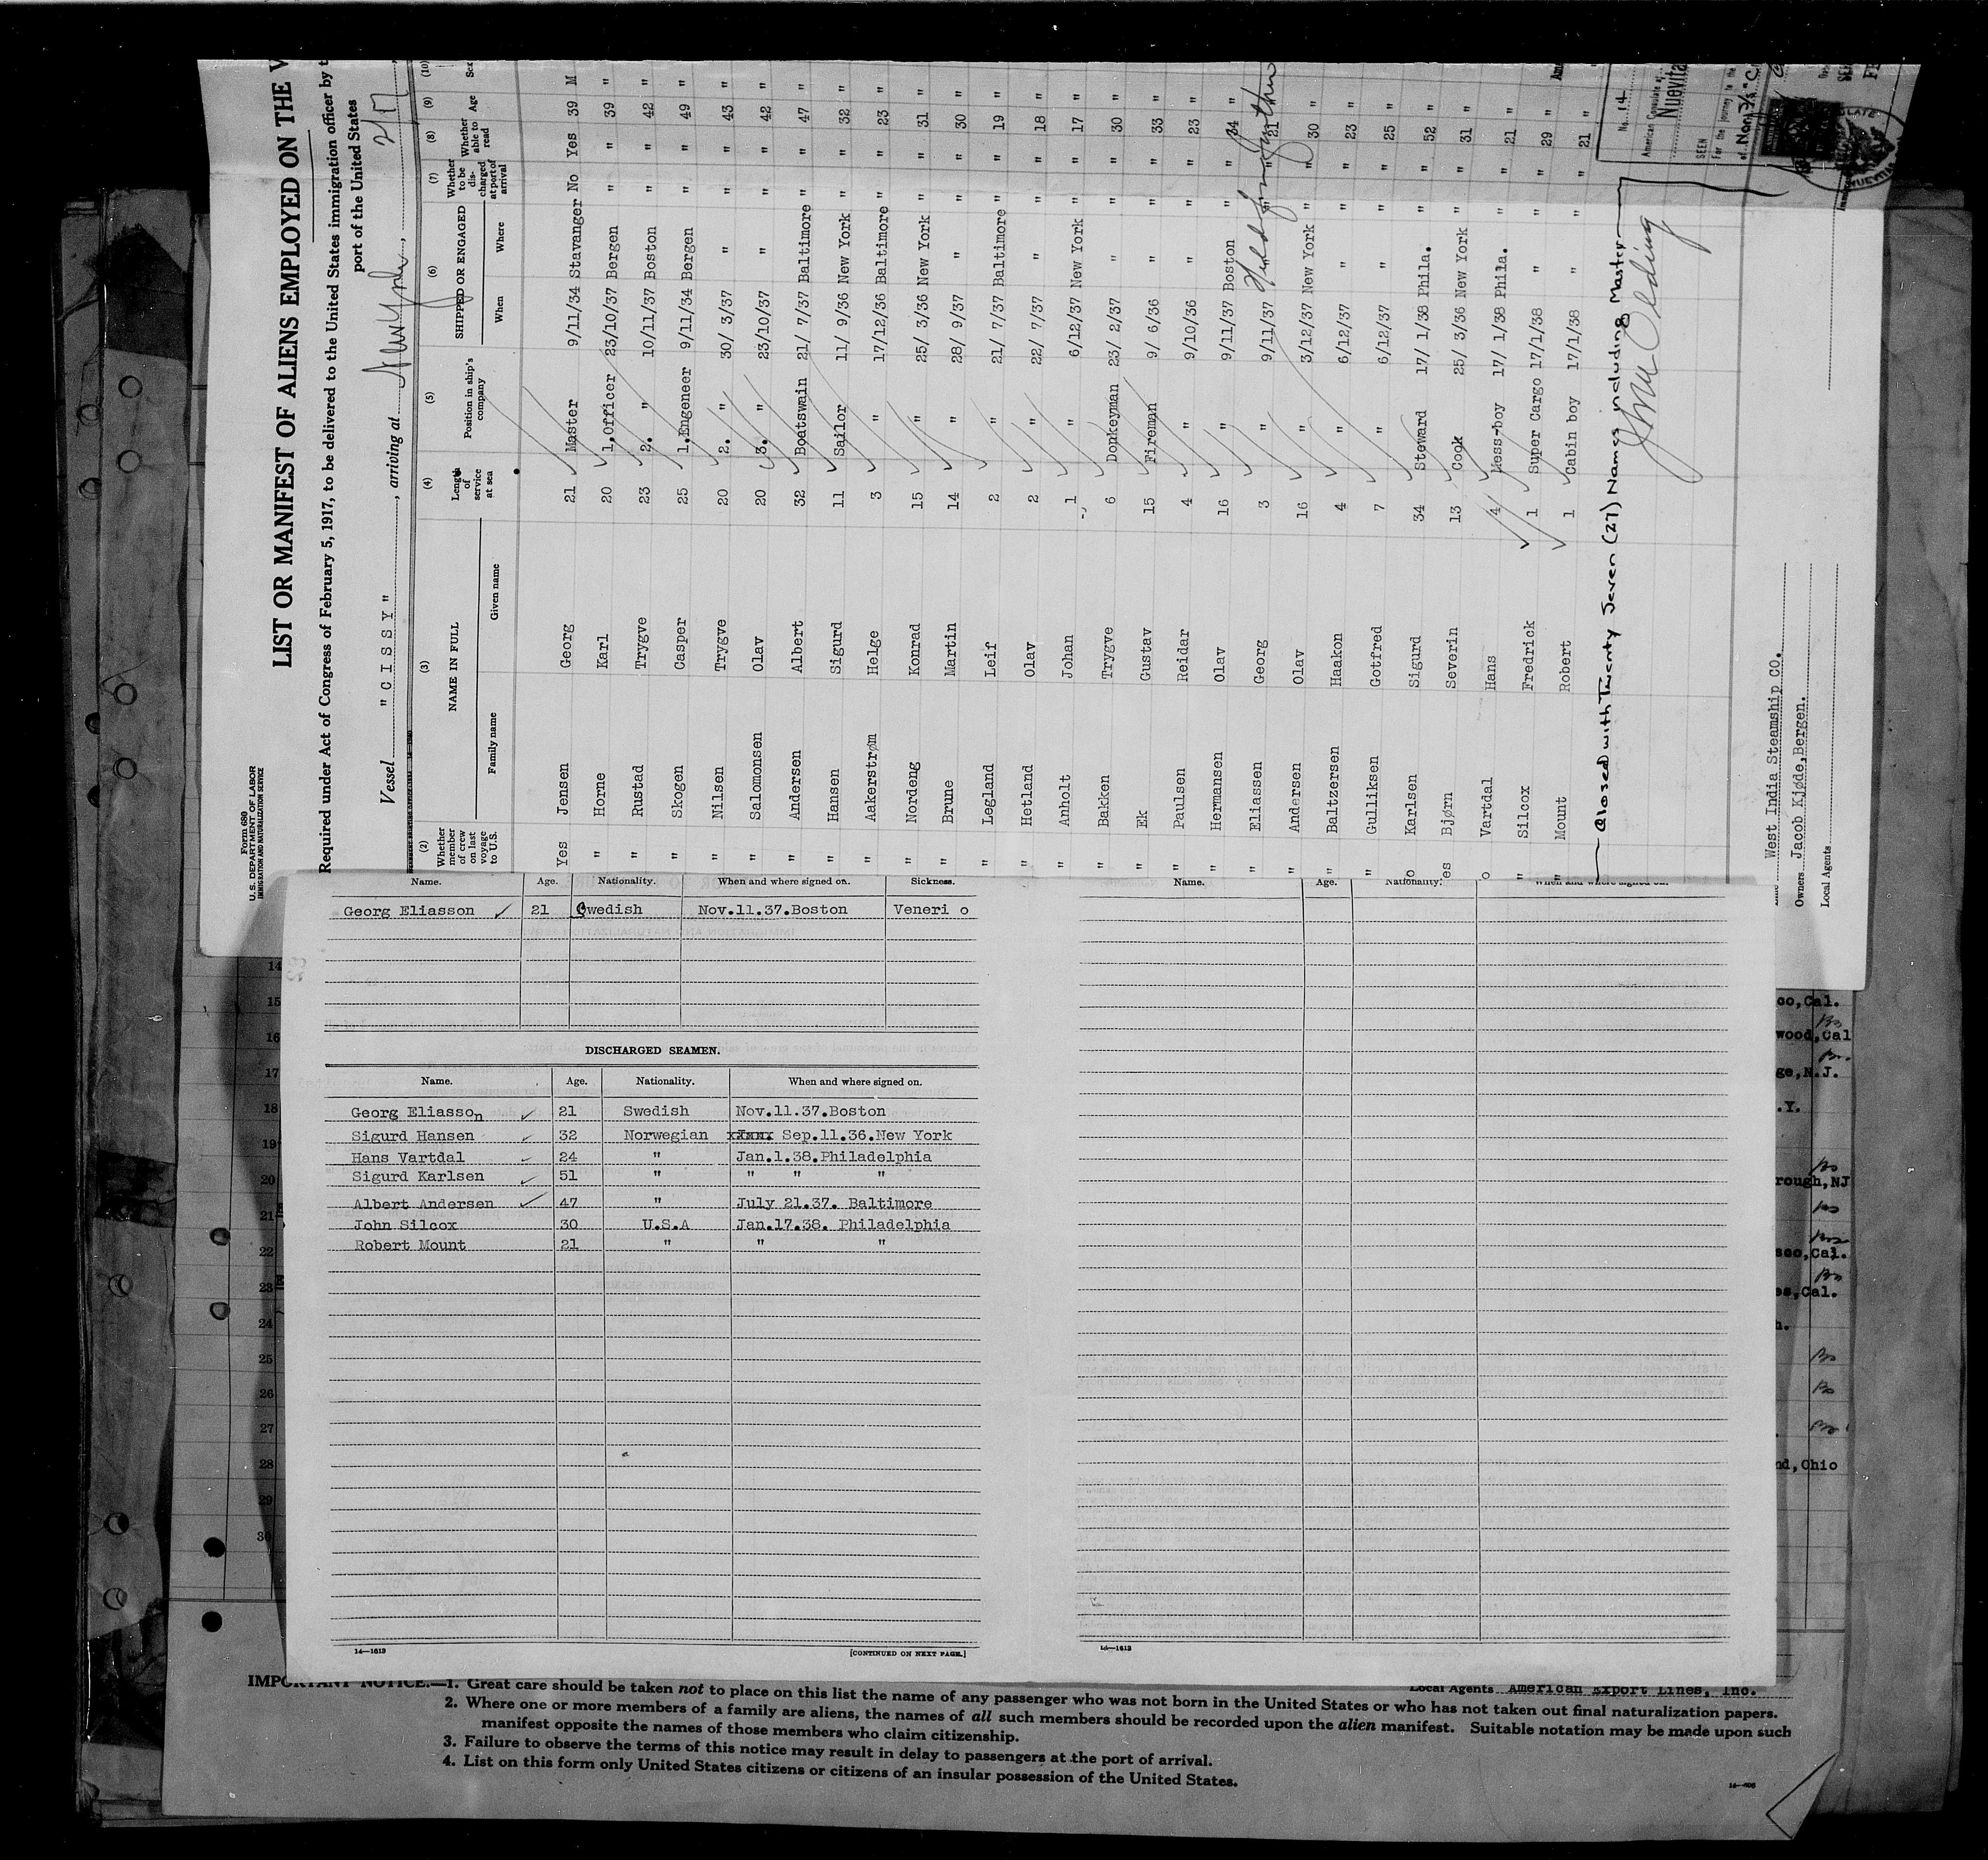 Form 680
U.S. DEPARTMENT OF LABOR
IMMIGRATION AND NATURALIZATION SERVICE
LIST OR MANIFEST OF ALIENS EMPLOYED ON THE
Required under Act of Congress of February 5, 1917, to be delivered to the United States immigration officer by
port of the United States
Vessel "CISSY", arriving at New York, 2/17
(2) (3) (4) (5) (6) (7) (8) (9) (10)
Whether member of crew on last voyage to U.S. NAME IN FULL Length of service at sea Position in ship's company SHIPPED OR ENGAGED Whether to be discharged at port of arrival Whether able to read Age Sex
Family name Given name When Where
Yes Jensen Georg 21 Master 9/11/34 Stavanger No Yes 39 M
" Horne Karl 20 1.Officer 23/10/37 Bergen " " 39 "
" Rustad Trygve 23 2. " 10/11/37 Boston " " 42 "
" Skogen Casper 25 1.Engeneer 9/11/34 Bergen " " 49 "
" Nilsen Trygve 20 2. " 30/ 3/37 " " " 43 "
" Salomonsen Olav 20 3. " 23/10/37 " " " 42 "
" Andersen Albert 32 Boatswain 21/ 7/37 Baltimore " " 47 "
" Hansen Sigurd 11 Sailor 11/ 9/36 New York " " 32 "
" Aakerstrøm Helge 3 " 17/12/36 Baltimore " " 23 "
" Nordeng Konrad 15 " 25/ 3/36 New York " " 31 "
" Brune Martin 14 " 28/ 9/37 " " " 30 "
" Legland Leif 2 " 21/ 7/37 Baltimore " " 19 "
" Hetland Olav 2 " 22/ 7/37 " " " 18 "
" Anholt Johan 1 " 6/12/37 New York " " 17 "
" Bakken Trygve 6 Donkeyman 23/ 2/37 " " " 30 "
" Ek Gustav 15 Fireman 9/ 6/36 " " " 33 "
" Paulsen Reidar 4 " 9/10/36 " " " 23 "
" Hermansen Olav 16 " 9/11/37 Boston " " 34 "
" Eliassen Georg 3 " 9/11/37 " " 21 "
" Andersen Olav 16 " 3/12/37 New York " " 30 "
" Baltzersen Haakon 4 " 6/12/37 " " " 23 "
" Gulliksen Gotfred 7 " 6/12/37 " " " 25 "
o Karlsen Sigurd 34 Steward 17/ 1/38 Phila. " " 52 "
es Bjørn Severin 13 Cook 25/ 3/36 New York " " 31 "
o Vartdal Hans 4 Mess-boy 17/ 1/38 Phila. " " 21 "
" Silcox Fredrick 1 Super Cargo 17/1/38 " " " 29 "
" Mount Robert 1 Cabin boy 17/1/38 " " " 21 "
Closed with Twenty Seven (27) Names including Master
No. 14
American Consulate
Nuevita
SEEN
For the journey to the
West India Steamship CO.
Owners Jacob Kjøde,Bergen.
Local Agents
Name. Age. Nationality. When and where signed on. Sickness.
Georg Eliasson 21 Swedish Nov.11.37.Boston Veneri o
DISCHARGED SEAMEN.
Name. Age. Nationality. When and where signed on.
Georg Eliasson 21 Swedish Nov.11.37.Boston
Sigurd Hansen 32 Norwegian Sep.11.36.New York
Hans Vartdal 24 " Jan.1.38.Philadelphia
Sigurd Karlsen 51 " " " "
Albert Andersen 47 " July 21.37. Baltimore
John Silcox 30 U.S.A Jan.17.38. Philadelphia
Robert Mount 21 " " "
14—1613
[CONTINUED ON NEXT PAGE.]
Name. Age. Nationality. When and where signed on.
14—1613
14
15
16
17
18
19
20
21
22
23
24
25
26
27
28
29
30
co,Cal.
wood,Cal
ge,N.J.
.Y.
rough,NJ
sco,Cal.
es,Cal.
h.
nd,Ohio
Local Agents American Export Lines, Inc.
IMPORTANT NOTICE.—1. Great care should be taken not to place on this list the name of any passenger who was not born in the United States or who has not taken out final naturalization papers.
2. Where one or more members of a family are aliens, the names of all such members should be recorded upon the alien manifest. Suitable notation may be made upon such
manifest opposite the names of those members who claim citizenship.
3. Failure to observe the terms of this notice may result in delay to passengers at the port of arrival.
4. List on this form only United States citizens or citizens of an insular possession of the United States.